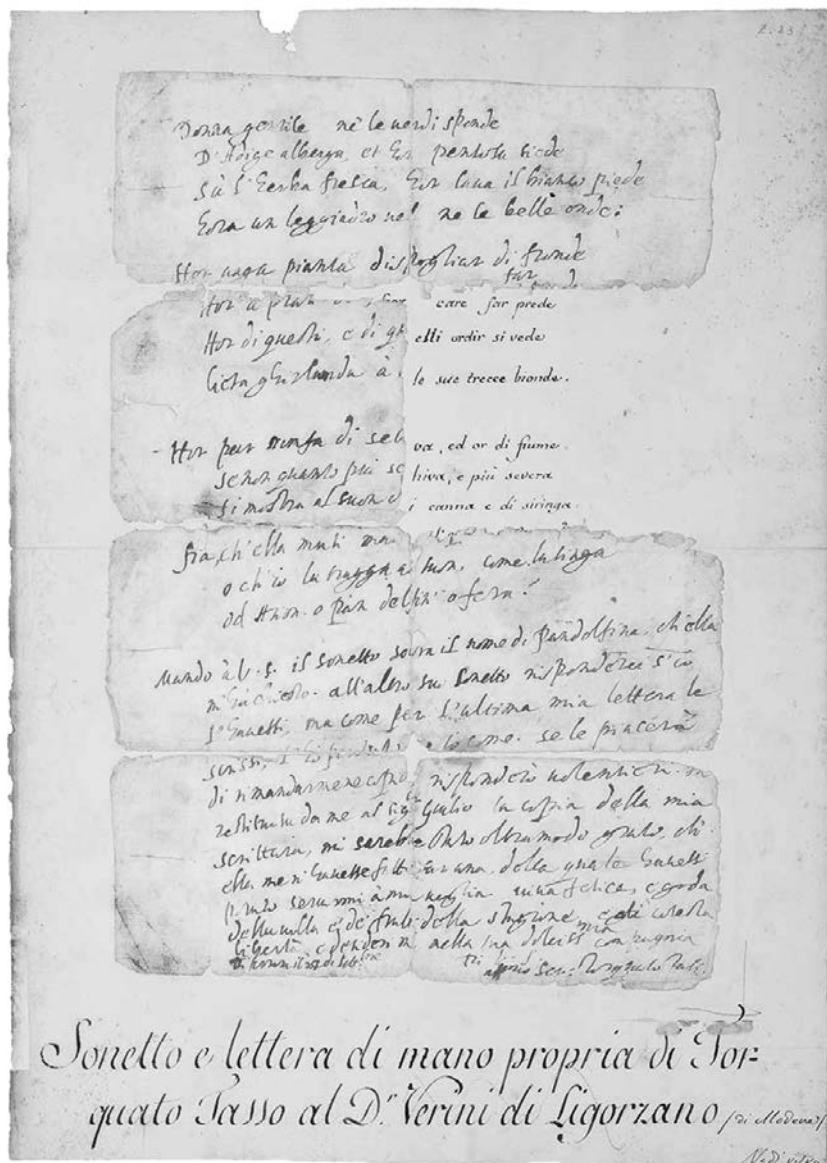 2. 23
Donna gentile nè le verdi sponde
D'Adige alberga, et hor pensosa siede
Sù l'herba fresca, hor lava il bianco piede
hora un leggiadro vel ne le belle onde:
Hor vaga pianta dispogliar di fronde
far
Hor a prati care far prede
Hor di questi, e di quelli ordir si vede
lieta ghirlanda à le sue trecce bionde.
Hor par ninfa di selva, ed or di fiume
se non quanto più schiva, e più severa
si mostra al suon di canna e di siringa.
fia, ch'ella muti
o ch'io la tragga a suon, come lusinga
od Arion o pan delfini o fera?
Mando à V. S. il sonetto sovra il nome di Pandolfina, ch'ella
m'hà chiesto. all'altro suo sonetto risponderei s'io
l'havessi, ma come per l'ultima mia lettera le
scrissi, l'hò perduto come. se le piacerà
di rimandarmene copia risponderò volentieri.
restituita da me al sig.r Giulio la copia della mia
scrittura, mi sarebbe stato oltramodo grato, ch'
ella me n'havesse fatta far una, della quale havessi
potuto servirmi à mia voglia. viva felice, e goda
della villa e de' frutti della stagione, e di cotesta
libertà nella sua dolciss.ma compagnia
Torquato Tasso.
Sonetto e lettera di mano propria di Tor=
quato Tasso al D.r Verini di Ligorzano (di Modena)
Vedi